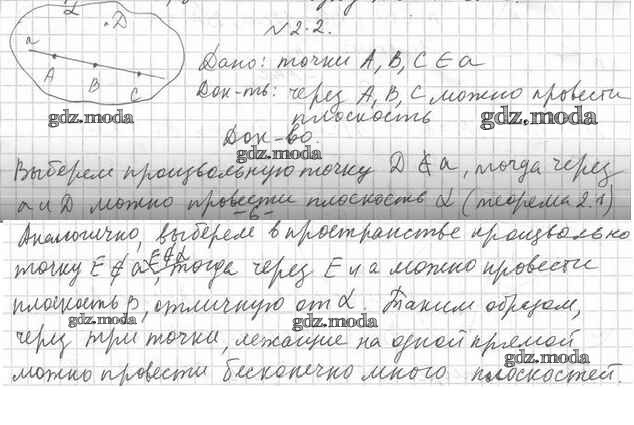 №2.2.
α
D
a
A
B
C
Дано: точки A, B, C ∈ a
Док-ть: через A, B, C можно провести
плоскость
gdz.moda
gdz.moda
Док-во.
gdz.moda
Выберем произвольную точку D ∉ a, тогда через
a и D можно провести плоскость α (теорема 2.1)
-6-
Аналогично, выберем в пространстве произвольно
E ∉ α
точку E ∉ a, тогда через E и a можно провести
плоскость β, отличную от α. Таким образом,
gdz.moda
gdz.moda
через три точки, лежащие на одной прямой
gdz.moda
можно провести бесконечно много плоскостей.